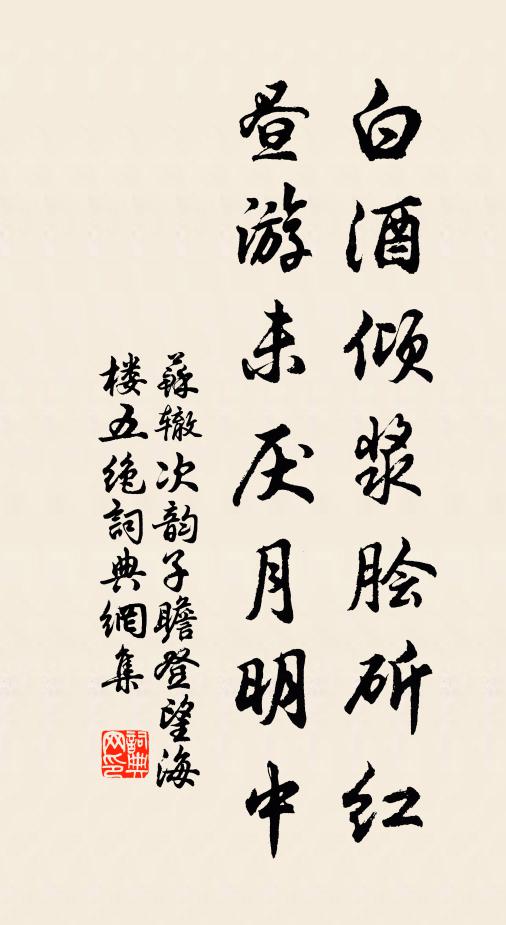 白酒倾浆脍斫红
昼游未厌月明中
蘇辙次韵子瞻登望海
楼五绝詞典網集
詞典
网印